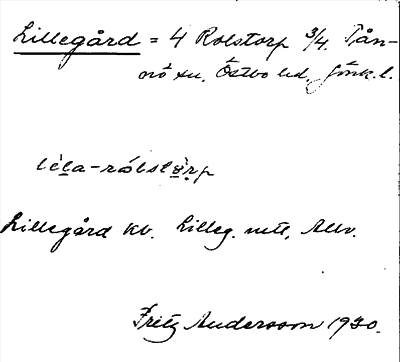 Lillegård = 4 Rolstorp 3/4. Tån-
nö sn, Östbo hd, Jönk. l.
lela-rólstörp
Lillegård kv. Lilleg. mtl, Allv.
Fritz Andersson 1930.